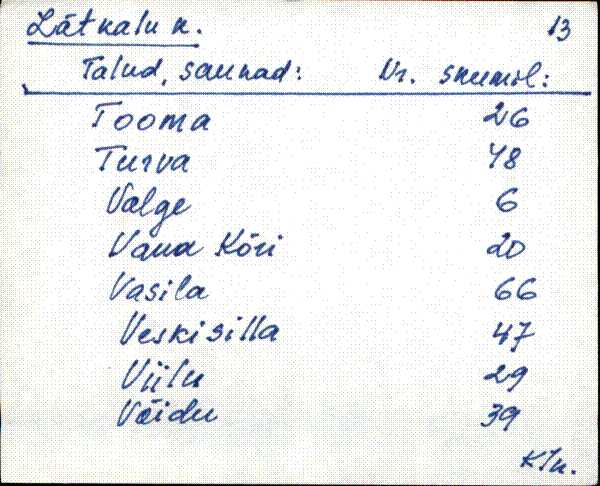 Lätkalu k. 13
Talud, saunad: Nr. skeemil:
Tooma 26
Turva 48
Valge 6
Vana Kõri 20
Vasila 66
Veskisilla 47
Viilu 29
Võidu 39